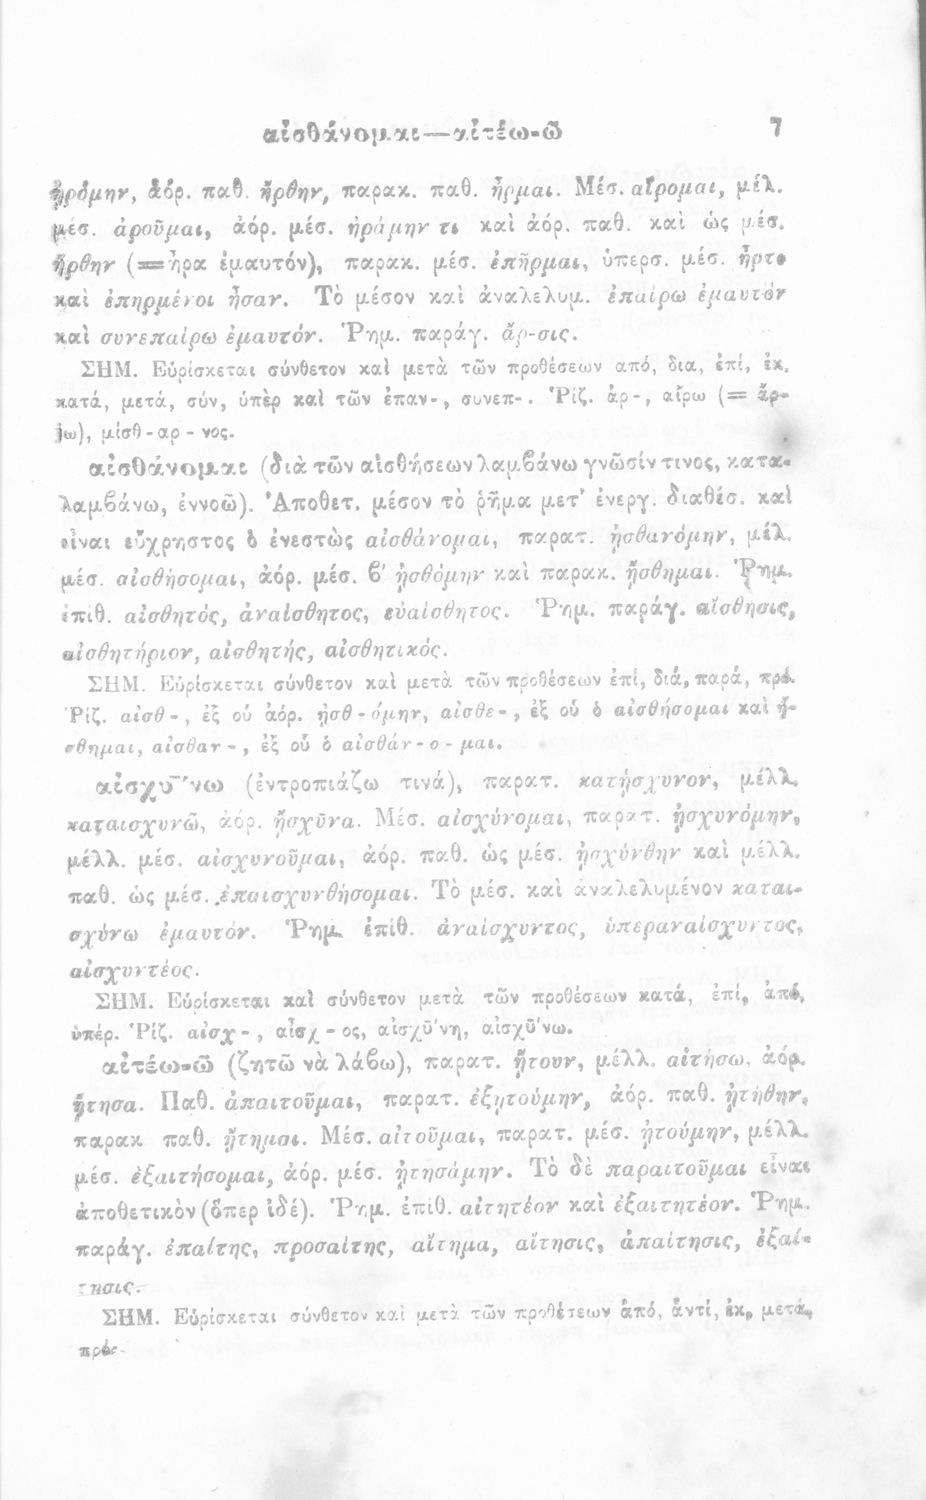 αἰσθάνομαι—αἰτέω-ῶ 7
ᾐρόμην, ἀόρ. παθ. ἤρθην, παρακ. παθ. ἦρμαι. Μέσ. αἴρομαι, μέλ.
μέσ. ἀροῦμαι, ἀόρ. μέσ. ἠράμην τι καὶ ἀόρ. παθ. καὶ ὡς μέσ.
ἤρθην (=ἦρα ἐμαυτόν), παρακ. μέσ. ἐπῆρμαι, ὑπερσ. μέσ. ἦρτο
καὶ ἐπηρμένοι ἦσαν. Τὸ μέσον καὶ ἀναλελυμ. ἐπαίρω ἐμαυτὸν
καὶ συνεπαίρω ἐμαυτόν. Ῥημ. παράγ. ἄρ-σις.
ΣΗΜ. Εὑρίσκεται σύνθετον καὶ μετὰ τῶν προθέσεων από, δια, ἐπί, ἐκ,
κατά, μετά, σύν, ὑπὲρ καὶ τῶν ἐπαν-, συνεπ-. Ῥίζ. ἀρ-, αἴρω (= ἄρ-
jω), μίσθ-αρ-νος.
αἰσθάνομαι (διὰ τῶν αἰσθήσεων λαμβάνω γνῶσίν τινος, κατα-
λαμβάνω, ἐννοῶ). Ἀποθετ. μέσον τὸ ῥῆμα μετ' ἐνεργ. διαθέσ. καὶ
εἶναι εὔχρηστος ὁ ἐνεστὼς αἰσθάνομαι, παρατ. ᾐσθανόμην, μέλ.
μέσ. αἰσθήσομαι, ἀόρ. μέσ. β' ᾐσθόμην καὶ παρακ. ᾔσθημαι. Ῥημ.
ἐπιθ. αἰσθητός, ἀναίσθητος, εὐαίσθητος. Ῥημ. παράγ. αἴσθησις,
αἰσθητήριον, αἰσθητής, αἰσθητικός.
ΣΗΜ. Εὑρίσκεται σύνθετον καὶ μετὰ τῶν προθέσεων ἐπί, διά, παρά, πρό.
Ῥίζ. αἰσθ-, ἐξ οὗ ἀόρ. ᾐσθ-όμην, αἰσθε-, ἐξ οὗ ὁ αἰσθήσομαι καὶ ᾔ-
σθημαι, αἰσθαν-, ἐξ οὗ ὁ αἰσθάν-ο-μαι.
αἰσχῡ́νω (ἐντροπιάζω τινά), παρατ. κατῄσχυνον, μέλλ.
καταισχυνῶ, ἀόρ. ᾔσχῡνα. Μέσ. αἰσχύνομαι, παρατ. ᾐσχυνόμην,
μέλλ. μέσ. αἰσχυνοῦμαι, ἀόρ. παθ. ὡς μέσ. ᾐσχύνθην καὶ μέλλ.
παθ. ὡς μέσ. ἐπαισχυνθήσομαι. Τὸ μέσ. καὶ ἀναλελυμένον καται-
σχύνω ἐμαυτόν. Ῥημ. ἐπίθ. ἀναίσχυντος, ὑπεραναίσχυντος,
αἰσχυντέος.
ΣΗΜ. Εὑρίσκεται καὶ σύνθετον μετὰ τῶν προθέσεων κατά, ἐπί, ἀπό,
ὑπέρ. Ῥίζ. αἰσχ-, αἶσχ-ος, αἰσχῡ́νη, αἰσχῡ́νω.
αἰτέω-ῶ (ζητῶ νὰ λάβω), παρατ. ᾔτουν, μέλλ. αἰτήσω. ἀόρ.
ᾔτησα. Παθ. ἀπαιτοῦμαι, παρατ. ἐξῃτούμην, ἀόρ. παθ. ᾐτήθην,
παρακ παθ. ᾔτημαι. Μέσ. αἰτοῦμαι, παρατ. μέσ. ᾐτούμην, μέλλ.
μέσ. ἐξαιτήσομαι, ἀόρ. μέσ. ᾐτησάμην. Τὸ δὲ παραιτοῦμαι εἶναι
ἀποθετικὸν (ὅπερ ἰδέ). Ῥημ. ἐπιθ. αἰτητέον καὶ ἐξαιτητέον. Ῥημ.
παράγ. ἐπαίτης, προσαίτης, αἴτημα, αἴτησις, ἀπαίτησις, ἐξαί-
τησις.
ΣΗΜ. Εὑρίσκεται σύνθετον καὶ μετὰ τῶν προθέσεων ἀπό, ἀντί, ἐκ, μετά,
πρός